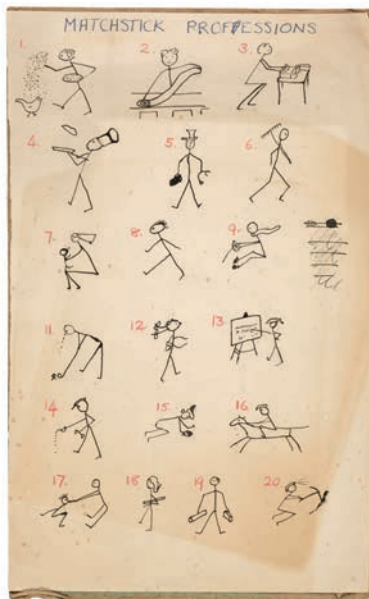 MATCHSTICK PROFFESSIONS
1. 2. 3.
4. 5. 6.
7. 8. 9.
11. 12. 13.
14 15. 16.
17. 18. 19. 20.